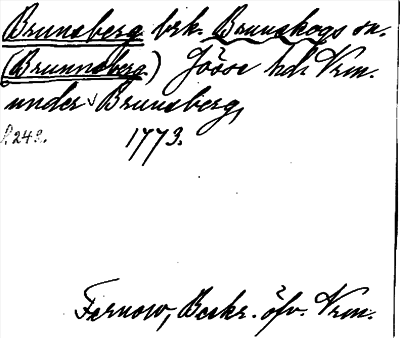 Brunsberg brk. Brunskogs sn.
(Brunnsberg) Jösse hd. Vrm.
under Brunsberg,
s. 248. 1773.
Fernow, Beskr. öfv. Vrm.